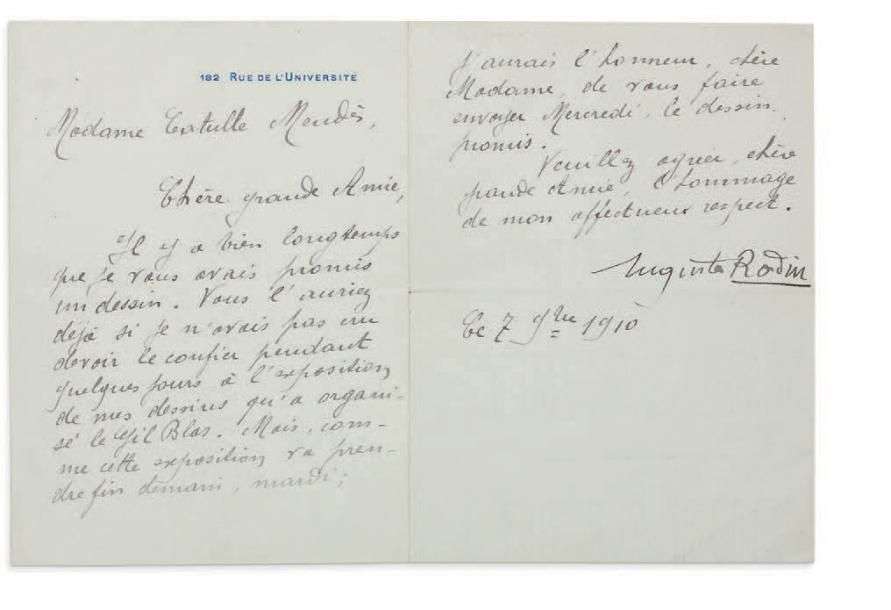 182 RUE DE L'UNIVERSITE
Madame Catulle Mendès,
Chère grande Amie,
Il y a bien longtemps
que je vous avais promis
un dessin. Vous l'auriez
déjà si je n'avais pas cru
devoir le confier pendant
quelques jours à l'exposition
de mes dessins qu'a organi-
sé le Gil Blas. Mais, com-
me cette exposition va pren-
dre fin demain, mardi;
j'aurais l'honneur, chère
Madame, de vous faire
envoyer Mercredi, le dessin
promis.
Veuillez agréer, chère
grande Amie, l'hommage
de mon affectueux respect.
Auguste Rodin
Le 7 9bre 1910